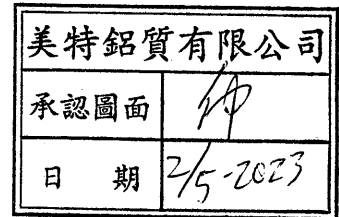 美特鋁質有限公司
承認圖面
日 期 2/5-2023